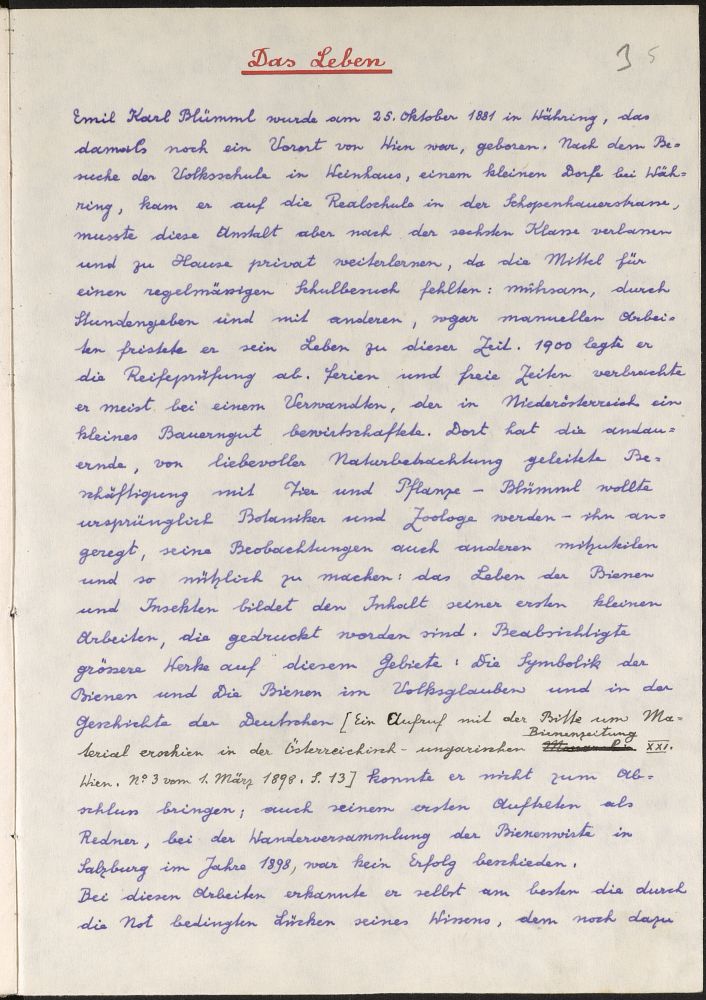 Das Leben
3 5
Emil Karl Blümml wurde am 25. Oktober 1881 in Währing, das
damals noch ein Vorort von Wien war, geboren. Nach dem Be=
suche der Volksschule in Weinhaus, einem kleinen Dorfe bei Wäh=
ring, kam er auf die Realschule in der Schopenhauerstrasse,
musste diese Anstalt aber nach der sechsten Klasse verlassen
und zu Hause privat weiterlernen, da die Mittel für
einen regelmässigen Schulbesuch fehlten: mühsam, durch
Stundengeben und mit anderen, sogar manuellen Arbei=
ten fristete er sein Leben zu dieser Zeit. 1900 legte er
die Reifeprüfung ab. Ferien und freie Zeiten verbrachte
er meist bei einem Verwandten, der in Niederösterreich ein
kleines Bauerngut bewirtschaftete. Dort hat die andau=
ernde, von liebevoller Naturbetrachtung geleitete Be=
schäftigung mit Tier und Pflanze – Blümml wollte
ursprünglich Botaniker und Zoologe werden – ihn an=
geregt, seine Beobachtungen auch anderen mitzuteilen
und so nützlich zu machen: das Leben der Bienen
und Insekten bildet den Inhalt seiner ersten kleinen
Arbeiten, die gedruckt worden sind. Beabsichtigte
grössere Werke auf diesem Gebiete: Die Symbolik der
Bienen und Die Bienen im Volksglauben und in der
Geschichte der Deutschen [Ein Aufruf mit der Bitte um Ma=
terial erschien in der Österreichisch-ungarischen Bienenzeitung XXI.
Wien. No 3 vom 1. März 1898. S. 13] konnte er nicht zum Ab=
schluss bringen; auch seinem ersten Auftreten als
Redner, bei der Wanderversammlung der Bienenwirte in
Salzburg im Jahre 1898, war kein Erfolg beschieden.
Bei diesen Arbeiten erkannte er selbst am besten die durch
die Not bedingten Lücken seines Wissens, dem noch dazu